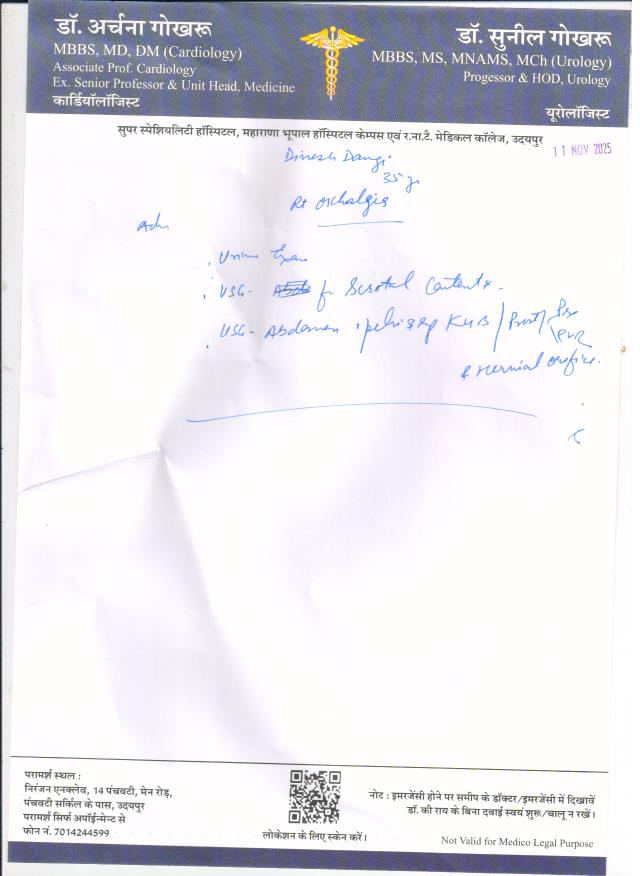 डॉ. अर्चना गोखरू
MBBS, MD, DM (Cardiology)
Associate Prof. Cardiology
Ex. Senior Professor & Unit Head, Medicine
कार्डियॉलॉजिस्ट
डॉ. सुनील गोखरू
MBBS, MS, MNAMS, MCh (Urology)
Progessor & HOD, Urology
यूरोलॉजिस्ट
सुपर स्पेशियलिटी हॉस्पिटल, महाराणा भूपाल हॉस्पिटल केम्पस एवं र.ना.टै. मेडिकल कॉलेज, उदयपुर
11 NOV 2025
Dinesh Dangi
35 yr
Rt Orchalgia
Adv.
. Urine Exam
. USG- for Scrotal Contents.
. USG- Abdomen KUB / Prost / Pre
PVR
& Hernial orifice.
परामर्श स्थल :
निरंजन एनक्लेव, 14 पंचवटी, मेन रोड़,
पंचवटी सर्किल के पास, उदयपुर
परामर्श सिर्फ अपॉईन्मेन्ट से
फोन नं. 7014244599
लोकेशन के लिए स्केन करें।
नोट : इमरजेंसी होने पर समीप के डॉक्टर/इमरजेंसी में दिखावें
डॉ. की राय के बिना दवाई स्वयं शुरू/चालू न रखें।
Not Valid for Medico Legal Purpose